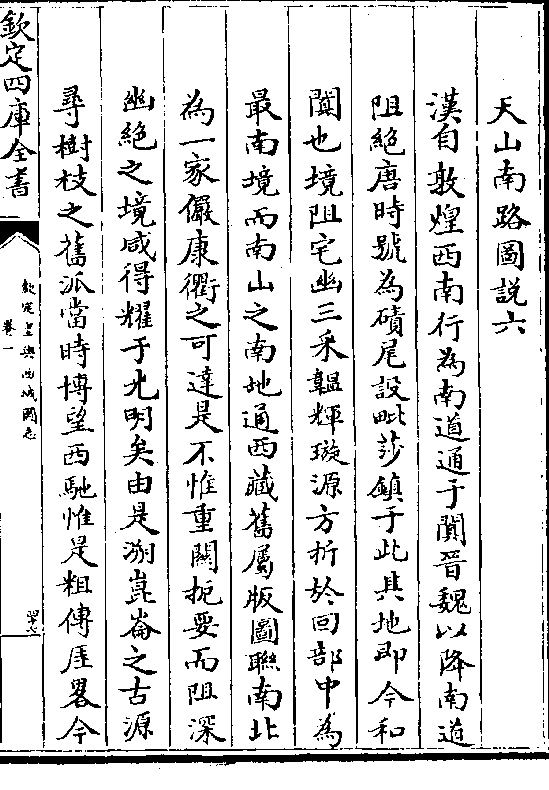 天山南路圖說六
漢自敦煌西南行為南道通于闐晉魏以降南道
阻絕唐時號為磧尾設毗莎鎮于此其地即今和
闐也境阻宅幽三采韞輝璇源方折於回部中為
最南境而南山之南地通西藏舊屬版圖聯南北
為一家儼康衢之可達是不惟重關扼要而阻深
幽絕之境咸得耀于光明矣由是溯崑崙之古源
尋樹枝之舊派當時博望西馳惟是粗傳厓畧今
欽定四庫全書
欽定皇輿西域圖志
卷一